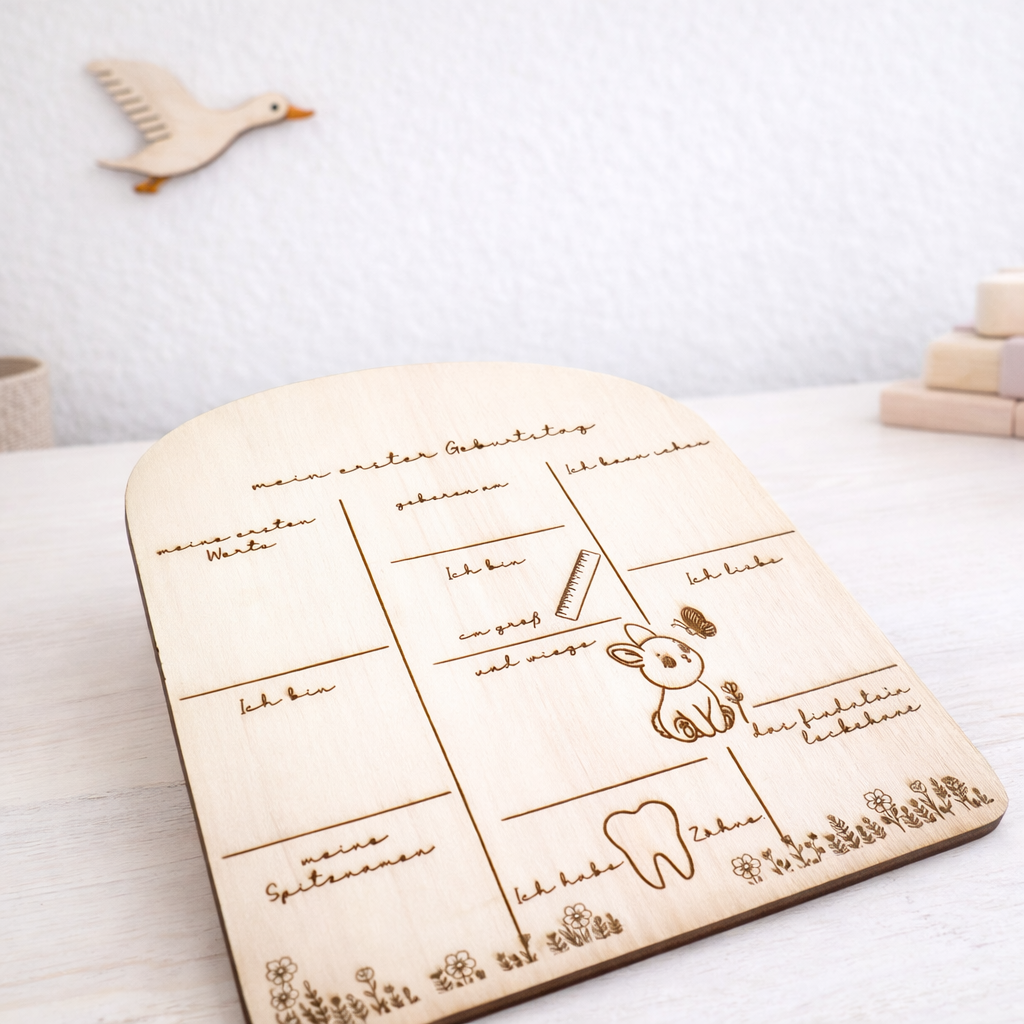 mein erster Geburtstag
meine ersten
Worte
Ich bin
meine
Spitznamen
geboren am
Ich bin
cm groß
und wiege
Ich habe
Zähne
Ich kann schon
Ich liebe
das finde ich
lecker